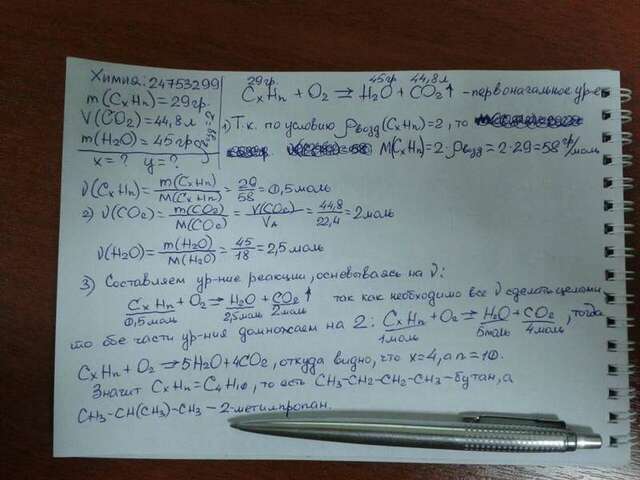 Химия: 24753299
m(CxHn)=29гр.
V(CO2)=44,8л
m(H2O)=45гр
x=? y=?
29гр. 45гр 44,8л
CxHn + O2 ⇒ H2O + CO2↑ - первоначальное ур-е
1) Т.к. по условию ρвозд(CxHn)=2, то
M(CxHn)=2·ρвозд=2·29=58 гр/моль
ν(CxHn)= m(CxHn)/M(CxHn) = 29/58 = 0,5моль
2) ν(CO2)= m(CO2)/M(CO2) = V(CO2)/VA = 44,8/22,4 = 2моль
ν(H2O)= m(H2O)/M(H2O) = 45/18 = 2,5 моль
3) Составляем ур-ние реакции, основываясь на ν:
CxHn + O2 ⇒ H2O + CO2↑ так как необходимо все ν сделать целыми
0,5моль 2,5моль 2моль
то обе части ур-ния домножаем на 2: CxHn + O2 ⇒ H2O + CO2, тогда
1моль 5моль 4моль
CxHn + O2 ⇒ 5H2O + 4CO2, откуда видно, что x=4, а n=10.
Значит CxHn = C4H10, то есть CH3-CH2-CH2-CH3 - бутан, а
CH3-CH(CH3)-CH3 - 2-метилпропан.